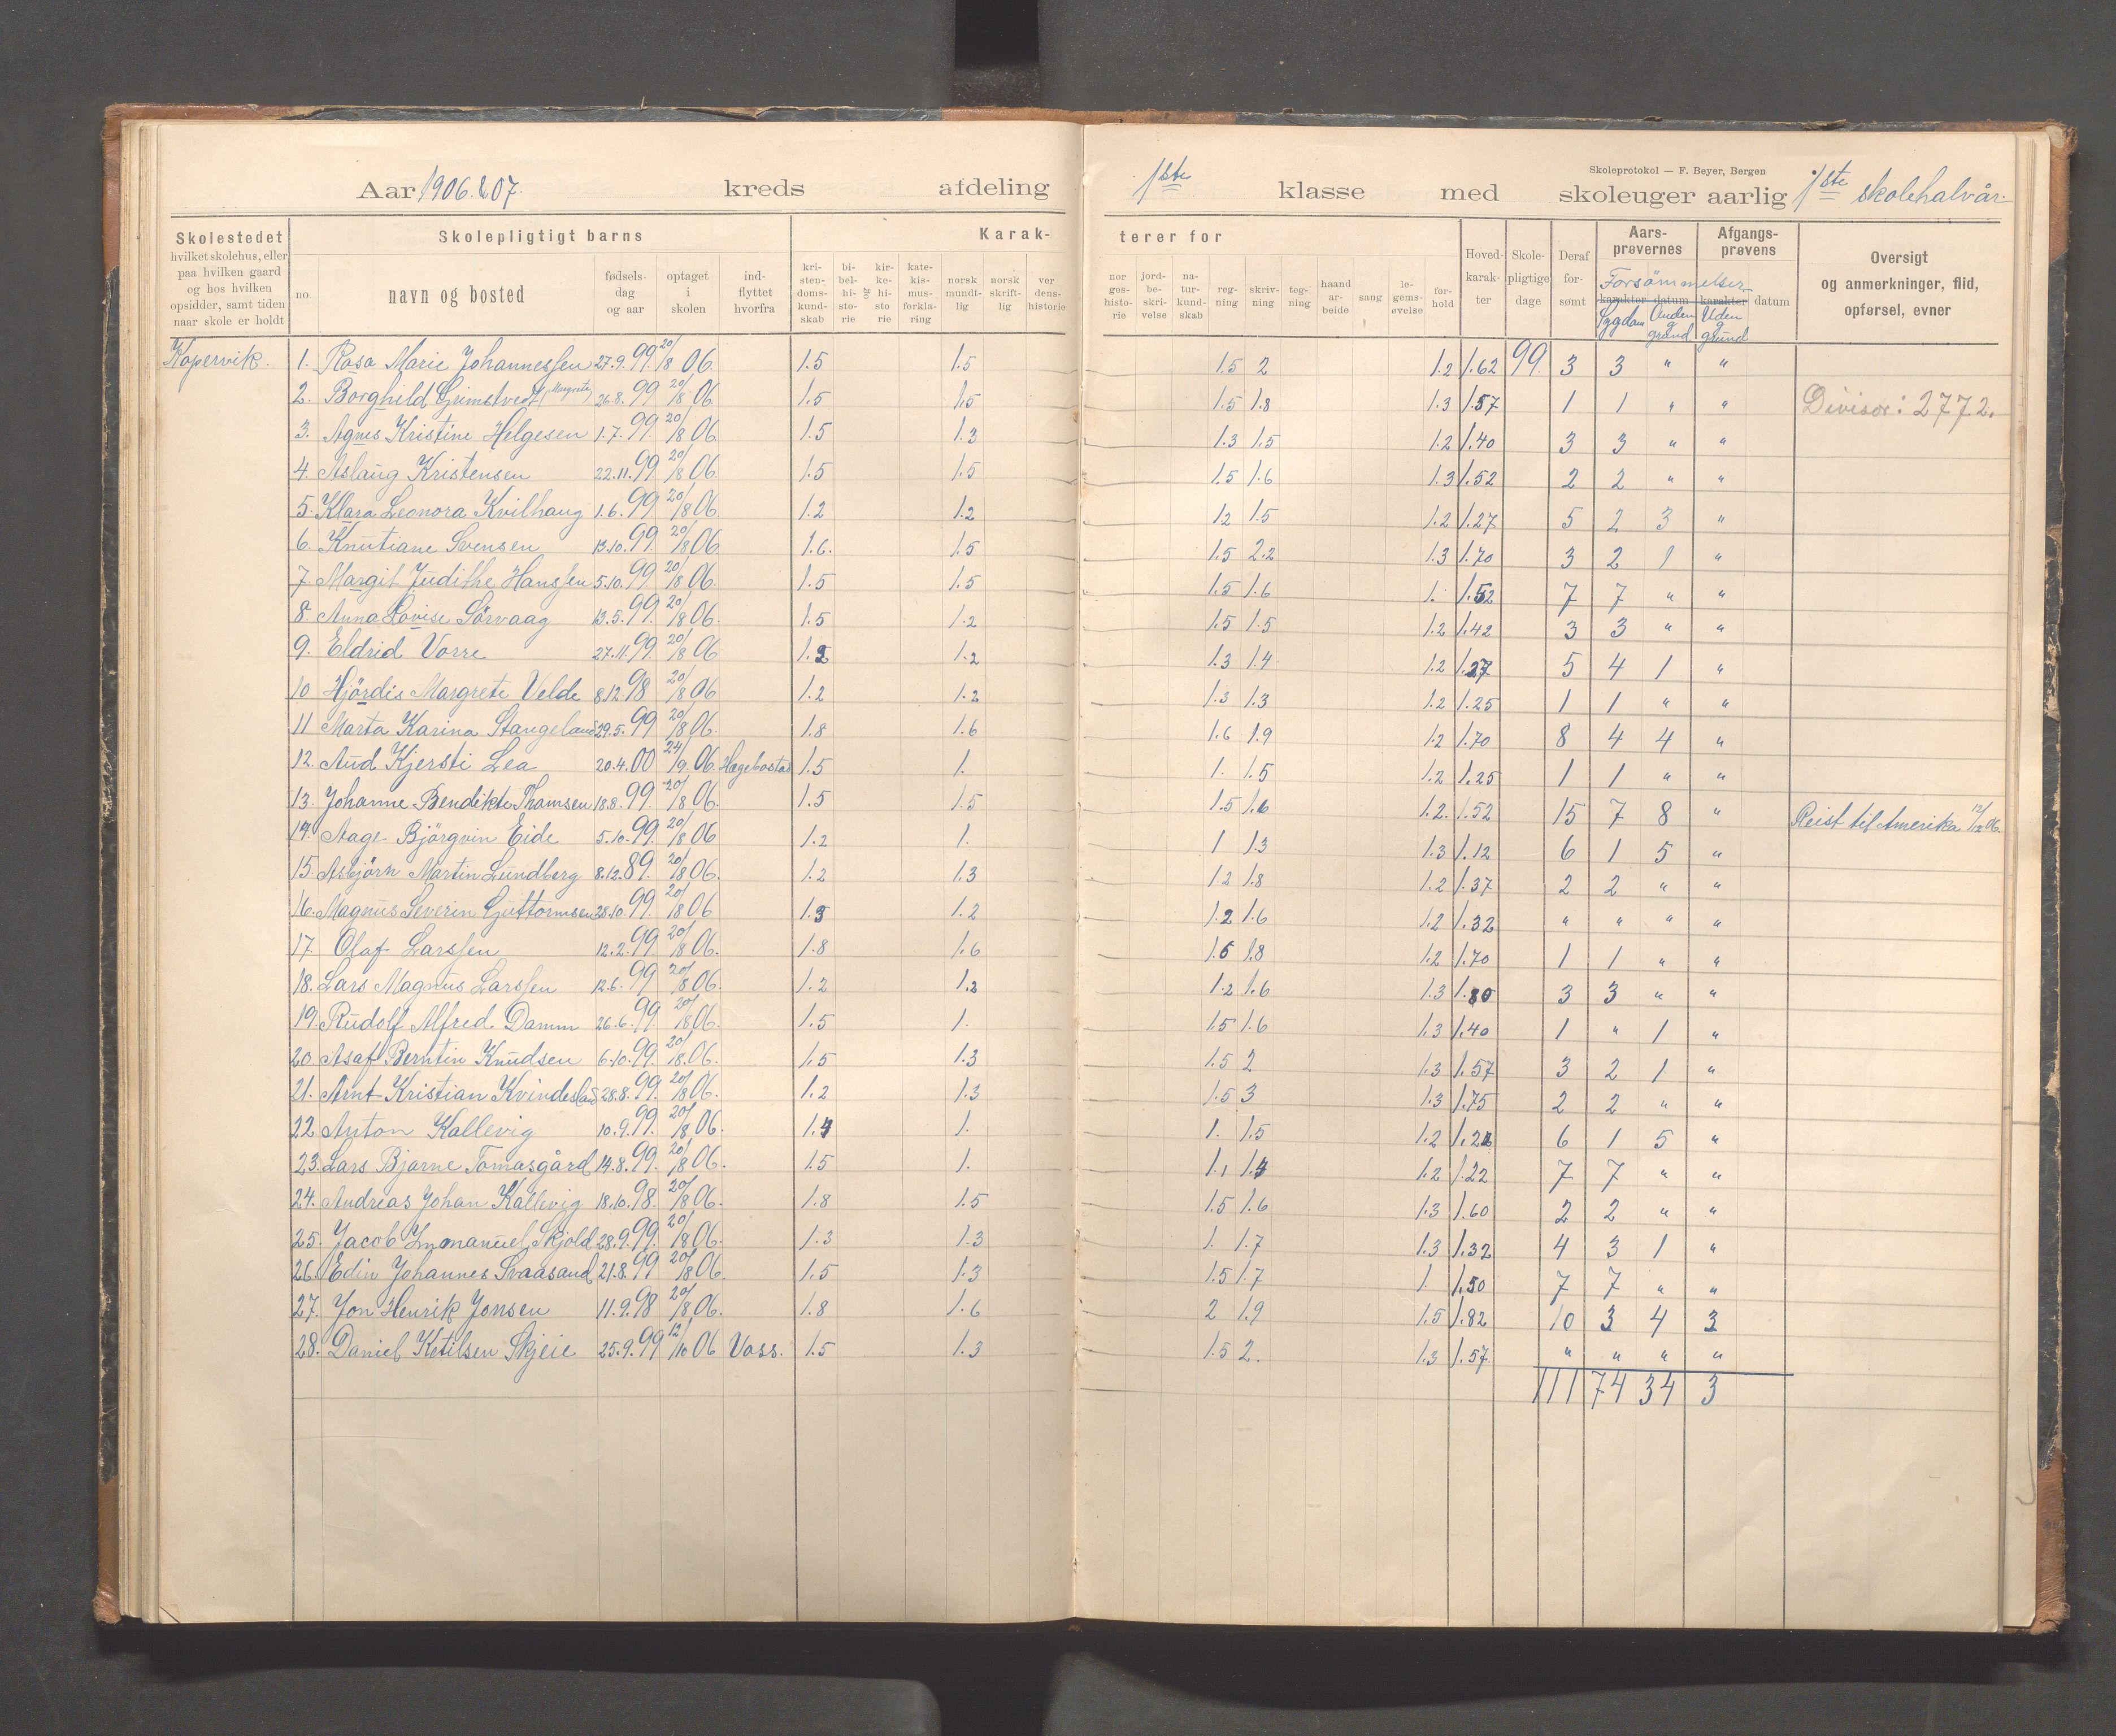 Skoleprotokol — F. Beyer, Bergen
Aar 1906 & 07. kreds afdeling 1ste klasse med skoleuger aarlig 1ste skolehalvår.
Skolestedet hvilket skolehus, eller paa hvilken gaard og hos hvilken opsidder, samt tiden naar skole er holdt
Skolepligtigt barns
no. navn og bosted fødselsdag og aar optaget i skolen indflyttet hvorfra
Karakterer for
kristendomskundskab bibelhistorie og kirkehistorie katekismusforklaring norsk mundtlig norsk skriftlig verdenshistorie norgeshistorie jordbeskrivelse naturkundskab regning skrivning tegning haandarbeide sang legemsøvelse forhold
Hovedkarakter Skolepligtige dage Deraf forsømt
Aarsprøvernes karakter datum
Afgangsprøvens karakter datum
Forsömmelser
Sygdom Anden g. grund Uden g. grund
Oversigt og anmerkninger, flid, opførsel, evner
Kopervik. 1. Rasa Marie Johannessen 27.9.99. 20/8 06. 1.5 1.5 1.5 2 1.2 1.62 99. 3 3 " "
2. Borghild Grimstvedt (Margrete) 26.8.99 20/8 06. 1.5 1.5 1.5 1.8 1.3 1.57 1 1 " " Divisor: 2772.
3. Agnes Kristine Helgesen 1.7.99 20/8 06. 1.5 1.3 1.3 1.5 1.2 1.40 3 3 " "
4. Aslaug Kristensen 22.11.99 20/8 06. 1.5 1.5 1.5 1.6 1.3 1.52 2 2 " "
5. Klara Leonora Kvilhaug 1.6.99 20/8 06. 1.2 1.2 1.2 1.5 1.2 1.27 5 2 3 "
6. Knutiane Svensen 13.10.99. 20/8 06. 1.6. 1.5 1.5 2.2 1.3 1.70 3 2 1 "
7. Margit Judithe Hanssen 5.10.99. 20/8 06. 1.5 1.5 1.5 1.6 1. 1.52 7 7 " "
8. Anna Lovise Sörvaag 13.5.99. 20/8 06. 1.5 1.2 1.5 1.5 1.2 1.42 3 3 " "
9. Eldrid Vorre 27.11.99. 20/8 06 1.2 1.2 1.3 1.4 1.2 1.27 5 4 1 "
10 Hjördis Margrete Velde 8.12.98 20/8 06 1.2 1.2 1.3 1.3 1.2 1.25 1 1 " "
11 Marta Karina Stangeland 29.5.99 20/8 06. 1.8 1.6 1.6 1.9 1.2 1.70 8 4 4 "
12. Aud Kjersti Lea 20.4.00 24/9 06. Hægebostad 1.5 1. 1. 1.5 1.2 1.25 1 1 " "
13. Johanne Bendikte Thomsen 18.8.99. 20/8 06. 1.5 1.5 1.5 1.6 1.2. 1.52 15 7 8 " Reist til Amerika 12/12 06.
14. Aage Björgvin Eide 5.10.99. 20/8 06 1.2 1. 1 1.3 1.3 1.12 6 1 5 "
15. Asbjörn Martin Lundberg 8.12.89. 20/8 06. 1.2 1.3 1.2 1.8 1.2 1.37 2 2 " "
16. Magnus Severin Guttormsen 28.10.99. 20/8 06 1.3 1.2 1.2 1.6 1.2 1.32 " " " "
17. Olaf Larssen 12.2.99. 20/8 06. 1.8 1.6 1.6 1.8 1.2 1.70 1 1 " "
18. Lars Magnus Larssen 12.6.99 20/8 06. 1.2 1.2 1.2 1.6 1.3 3 3 " "
19. Rudolf Alfred Damm 26.6.99 20/8 06. 1.5 1. 1.5 1.6 1.3 1.40 1 " 1 "
20. Asaf Berntin Knudsen 6.10.99. 20/8 06. 1.5 1.3 1.5 2 1.3 1.57 3 2 1 "
21. Arnt Kristian Kvindesland 28.8.99. 20/8 06. 1.2 1.3 1.5 3 1.3 1.75 2 2 " "
22 Anton Kallevig 10.9.99. 20/8 06. 1. 1. 1.5 1.2 6 1 5 "
23. Lars Bjarne Tomasgård 14.8.99. 20/8 06. 1.5 1. 1.1 1.2 1.22 7 7 " "
24. Andreas Johan Kallevig 18.10.98. 20/8 06. 1.8 1.5 1.5 1.6 1.3 1.60 2 2 " "
25. Jacob Immanuel Skjold 28.9.99. 20/8 06. 1.3 1.3 1. 1.7 1.3 1.32 4 3 1 "
26. Edin Johannes Svaasand 21.8.99 20/8 06. 1.5 1.3 1.5 1.7 1 1.50 7 7 " "
27. Jon Henrik Jonsen 11.9.98 20/8 06. 1.8 1.6 2 1.9 1.5 1.82 10 3 4 3
28. Daniel Ketilsen Skjeie 25.9.99 12/10 06 Voss. 1.5 1.3 1.5 2. 1.3 1.57 " " " "
111 74 34 3